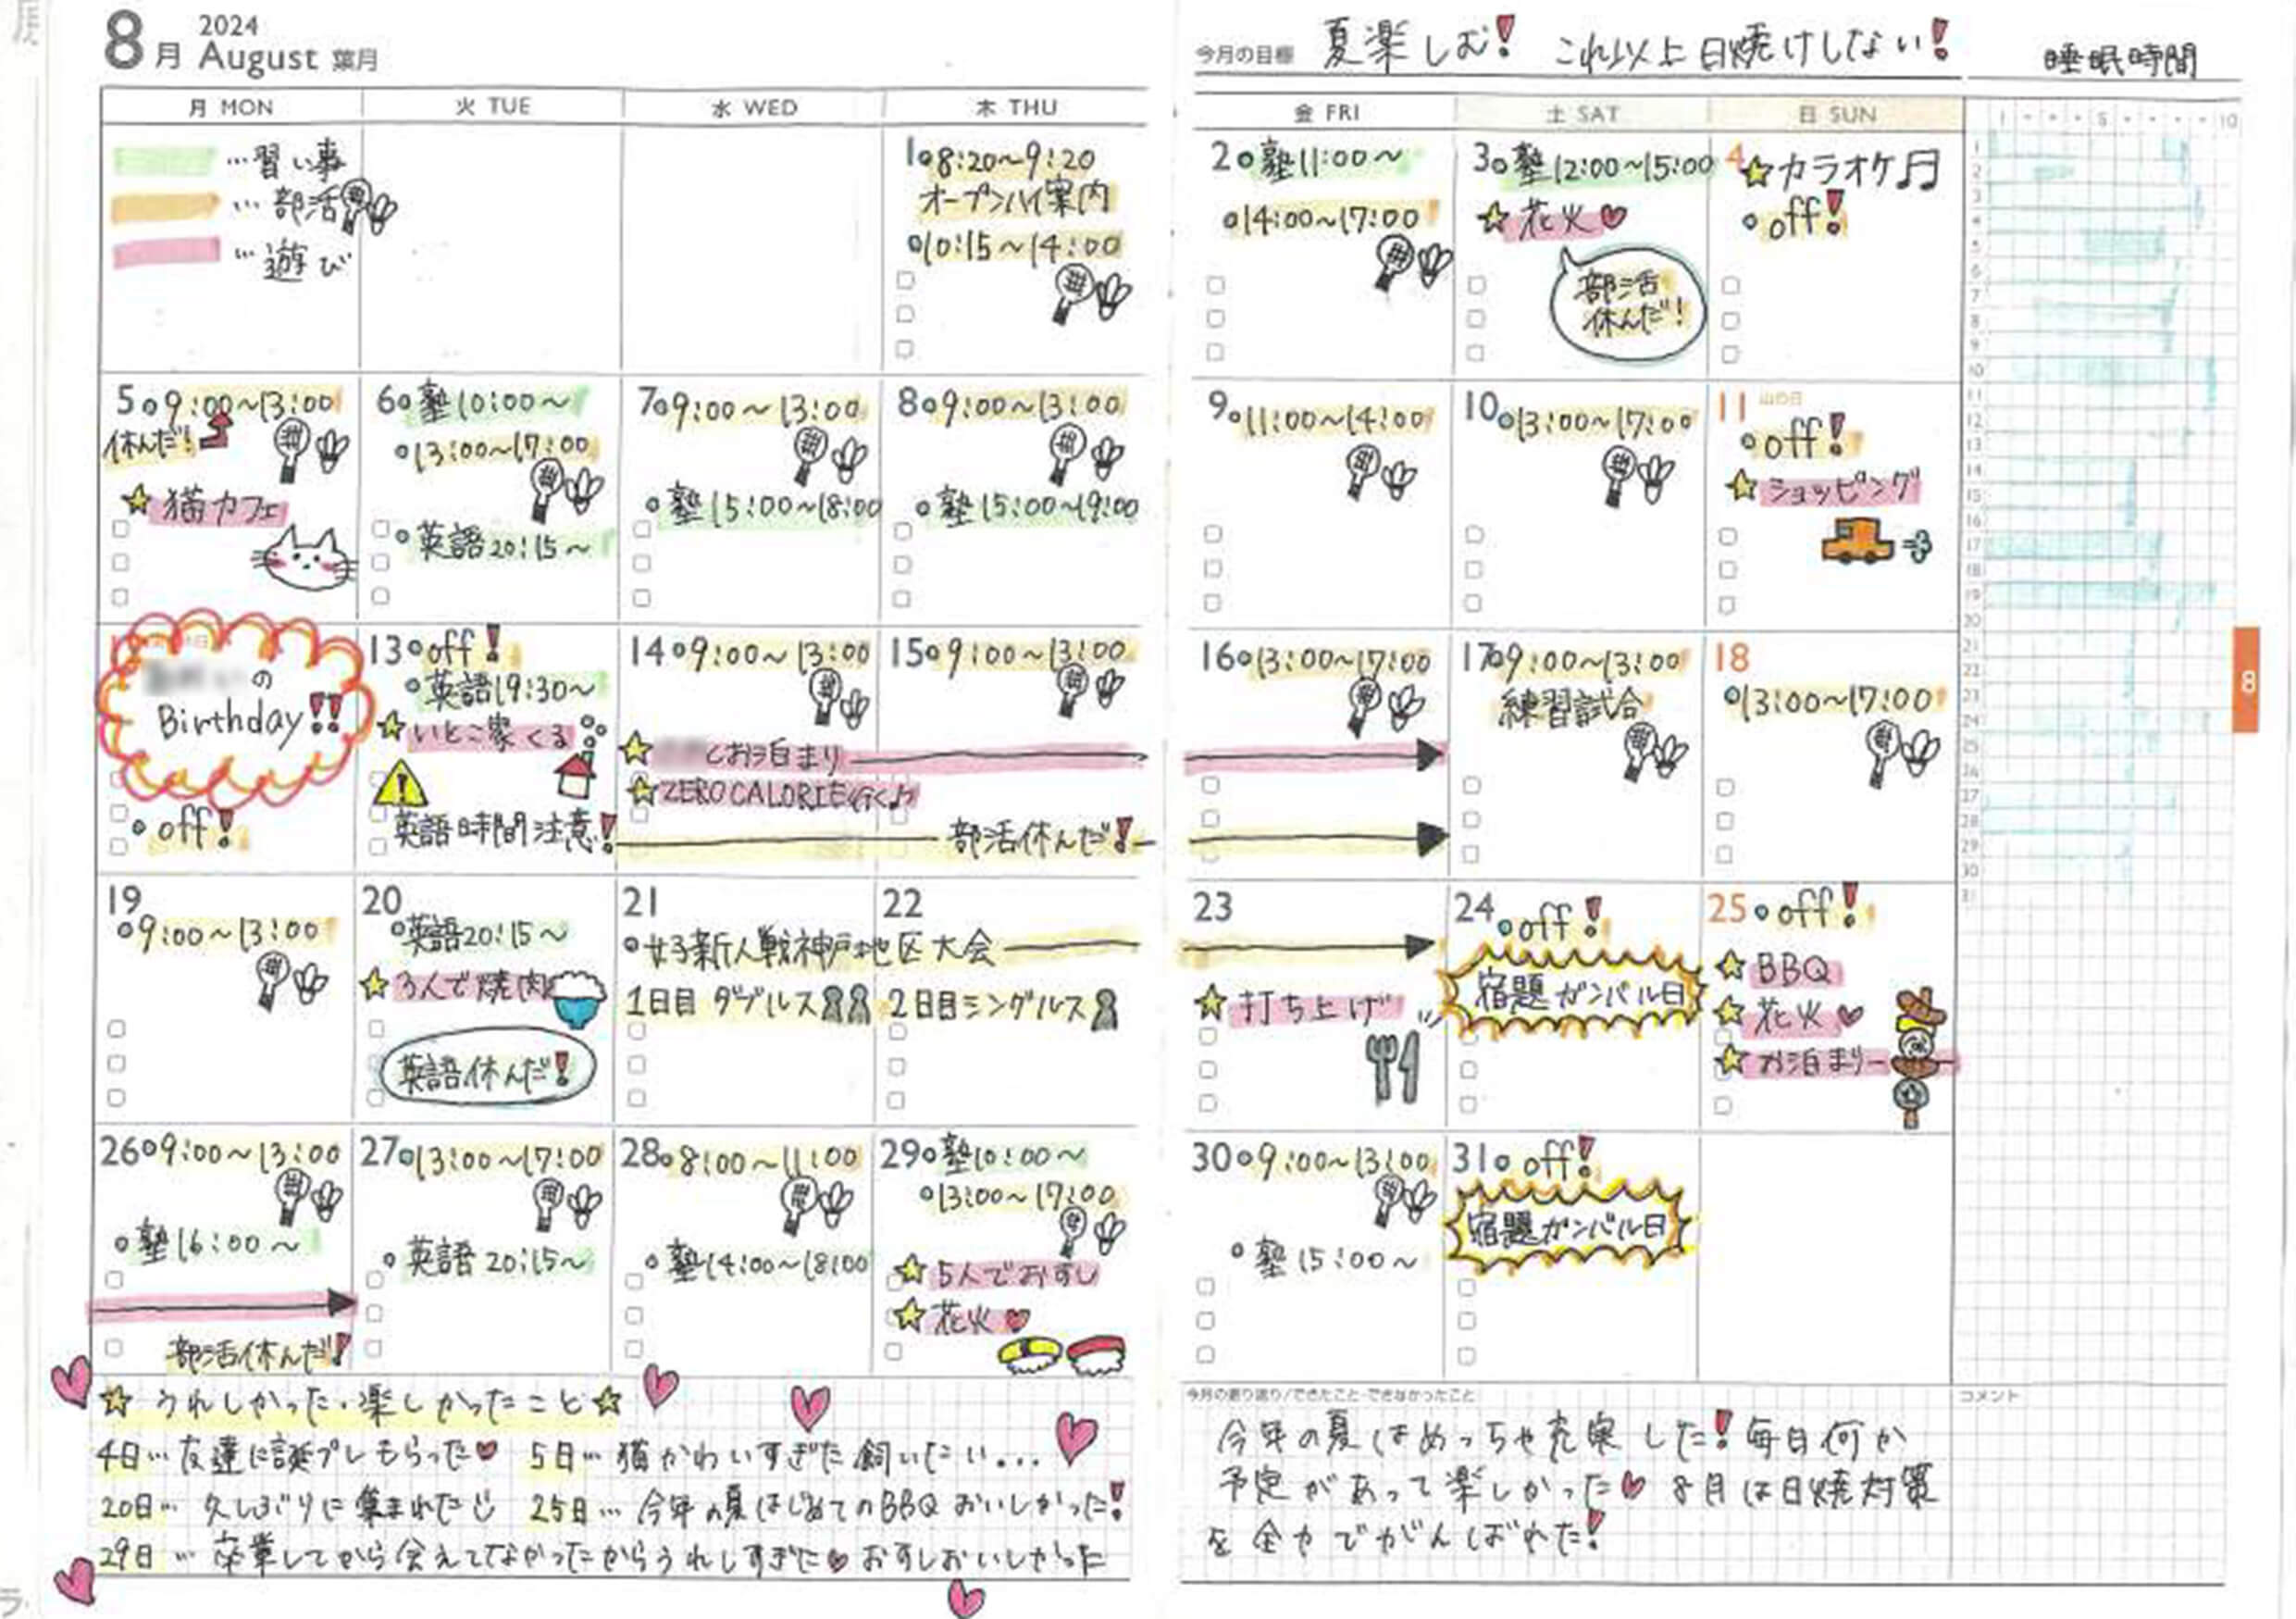 8月 2024 August 葉月
今月の目標 夏楽しむ! これ以上日焼けしない!
睡眠時間
月 MON 火 TUE 水 WED 木 THU 金 FRI 土 SAT 日 SUN
…習い事
…部活
…遊び
1 8:20~9:20
オープンハイ案内
10:15~14:00
2 塾11:00~
14:00~17:00
3 塾12:00~15:00
☆花火♡
部活
休んだ!
4 ☆カラオケ♫
off!
5 9:00~13:00
休んだ!
☆猫カフェ
6 塾10:00~
13:00~17:00
英語20:15~
7 9:00~13:00
塾15:00~18:00
8 9:00~13:00
塾15:00~19:00
9 11:00~14:00
10 13:00~17:00
11 山の日
off!
☆ショッピング
の
Birthday!!
off!
13 off!
英語19:30~
☆いとこ家くる
英語時間注意!
14 9:00~13:00
☆ とお泊まり
☆ZERO CALORIE行く♪
15 9:00~13:00
部活休んだ!
16 13:00~17:00
17 9:00~13:00
練習試合
18
13:00~17:00
19
9:00~13:00
20
英語20:15~
☆3人で焼肉
英語休んだ!
21
女子新人戦神戸地区大会
1日目 ダブルス
22
2日目シングルス
23
☆打ち上げ
24 off!
宿題ガンバル日
25 off!
☆BBQ
☆花火♡
☆お泊まり
26 9:00~13:00
塾16:00~
部活休んだ!
27 13:00~17:00
英語20:15~
28 8:00~11:00
塾14:00~18:00
29 塾10:00~
13:00~17:00
☆5人でおすし
☆花火♡
30 9:00~13:00
塾15:00~
31 off!
宿題ガンバル日
8
☆うれしかった・楽しかったこと☆
4日… 友達に誕プレもらった♡ 5日… 猫かわいすぎた 飼いたい...
20日… 久しぶりに集まれた 25日… 今年の夏はじめてのBBQおいしかった!
29日… 卒業してから会えてなかったからうれしすぎた♡おすしおいしかった
今月の振り返り/できたこと・できなかったこと
コメント
今年の夏はめっちゃ充実した!毎日何か
予定があって楽しかった♡ 8月は日焼対策
を全力でがんばれた!